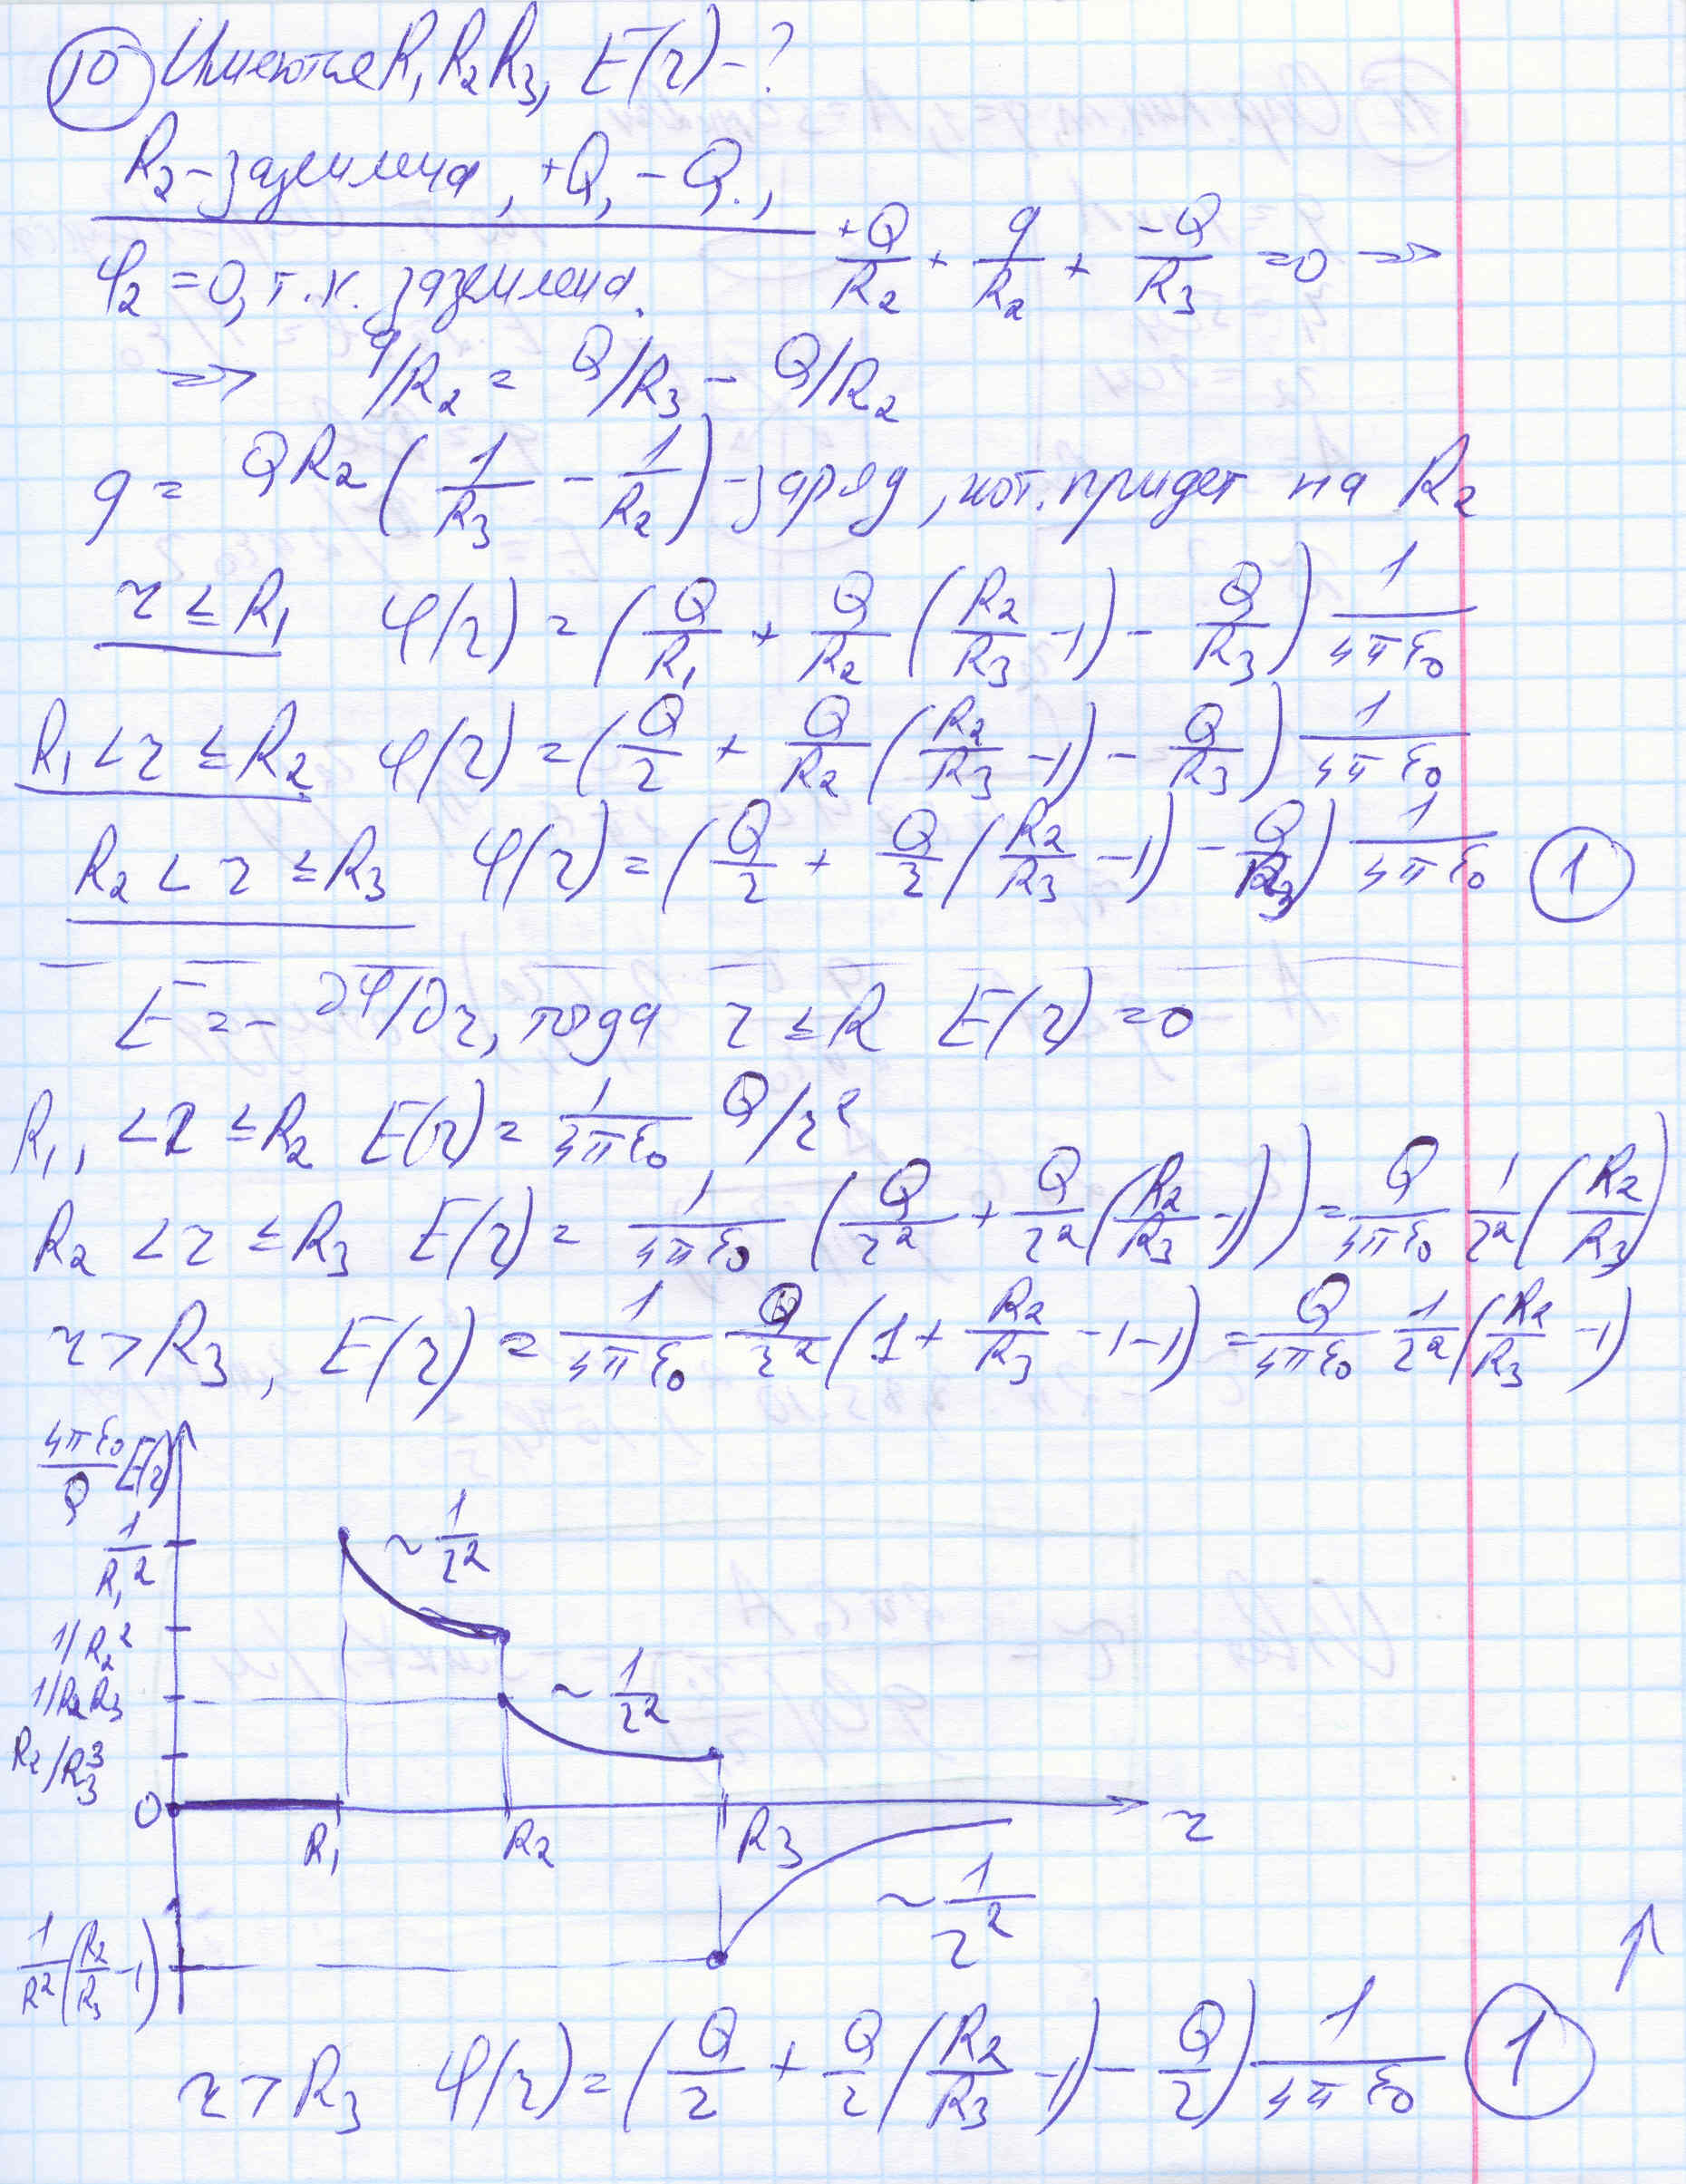 10 Имеются R₁ R₂ R₃, E(r) - ?
R₂ - заземлена, +Q, -Q.,
φ₂ = 0, т.к. заземлена. +Q/R₂ + q/R₂ + -Q/R₃ = 0 →
→ q/R₂ = Q/R₃ - Q/R₂
q = QR₂ (1/R₃ - 1/R₂) - заряд, кот. придет на R₂
r ≤ R₁ φ(r) = (Q/R₁ + Q/R₂ (R₂/R₃ - 1) - Q/R₃) 1/4πε₀
R₁ < r ≤ R₂ φ(r) = (Q/r + Q/R₂ (R₂/R₃ - 1) - Q/R₃) 1/4πε₀
R₂ < r ≤ R₃ φ(r) = (Q/r + Q/r (R₂/R₃ - 1) - Q/R₃) 1/4πε₀ 1
E = - ∂φ/∂r, тогда r ≤ R E(r) = 0
R₁, < r ≤ R₂ E(r) = 1/4πε₀ Q/r²
R₂ < r ≤ R₃ E(r) = 1/4πε₀ (Q/r² + Q/r² (R₂/R₃ - 1)) = Q/4πε₀ 1/r² (R₂/R₃)
r > R₃, E(r) = 1/4πε₀ Q/r² (1 + R₂/R₃ - 1 - 1) = Q/4πε₀ 1/r² (R₂/R₃ - 1)
4πε₀/Q E(r)
1/R₁²
~ 1/r²
1/R₂²
1/R₂R₃
~ 1/r²
R₂/R₃³
0
R₁ R₂ R₃ r
~ 1/r²
1/R² (R₂/R₃ - 1)
r > R₃ φ(r) = (Q/r + Q/r (R₂/R₃ - 1) - Q/r) 1/4πε₀ 1